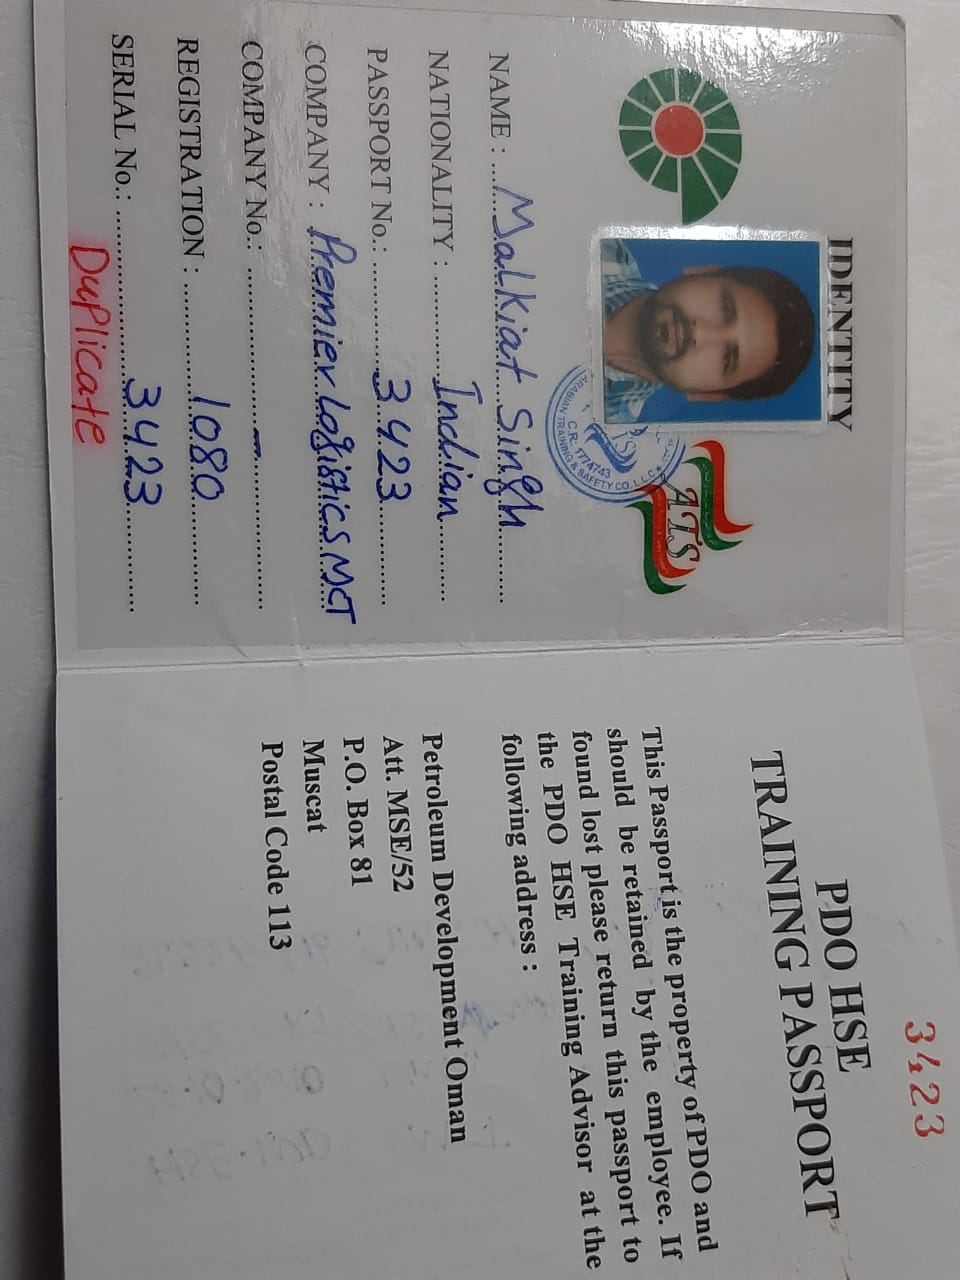 IDENTITY
ATS
ARABIAN TRAINING & SAFETY CO. L.L.C
C.R: 1774743
NAME : Malkiat Singh
NATIONALITY : Indian
PASSPORT No.: 3423
COMPANY : Premier Logistics MCT
COMPANY No.: –
REGISTRATION : 1080
SERIAL No.: 3423
Duplicate
3423
PDO HSE
TRAINING PASSPORT
This Passport is the property of PDO and
should be retained by the employee. If
found lost please return this passport to
the PDO HSE Training Advisor at the
following address :
Petroleum Development Oman
Att. MSE/52
P.O. Box 81
Muscat
Postal Code 113